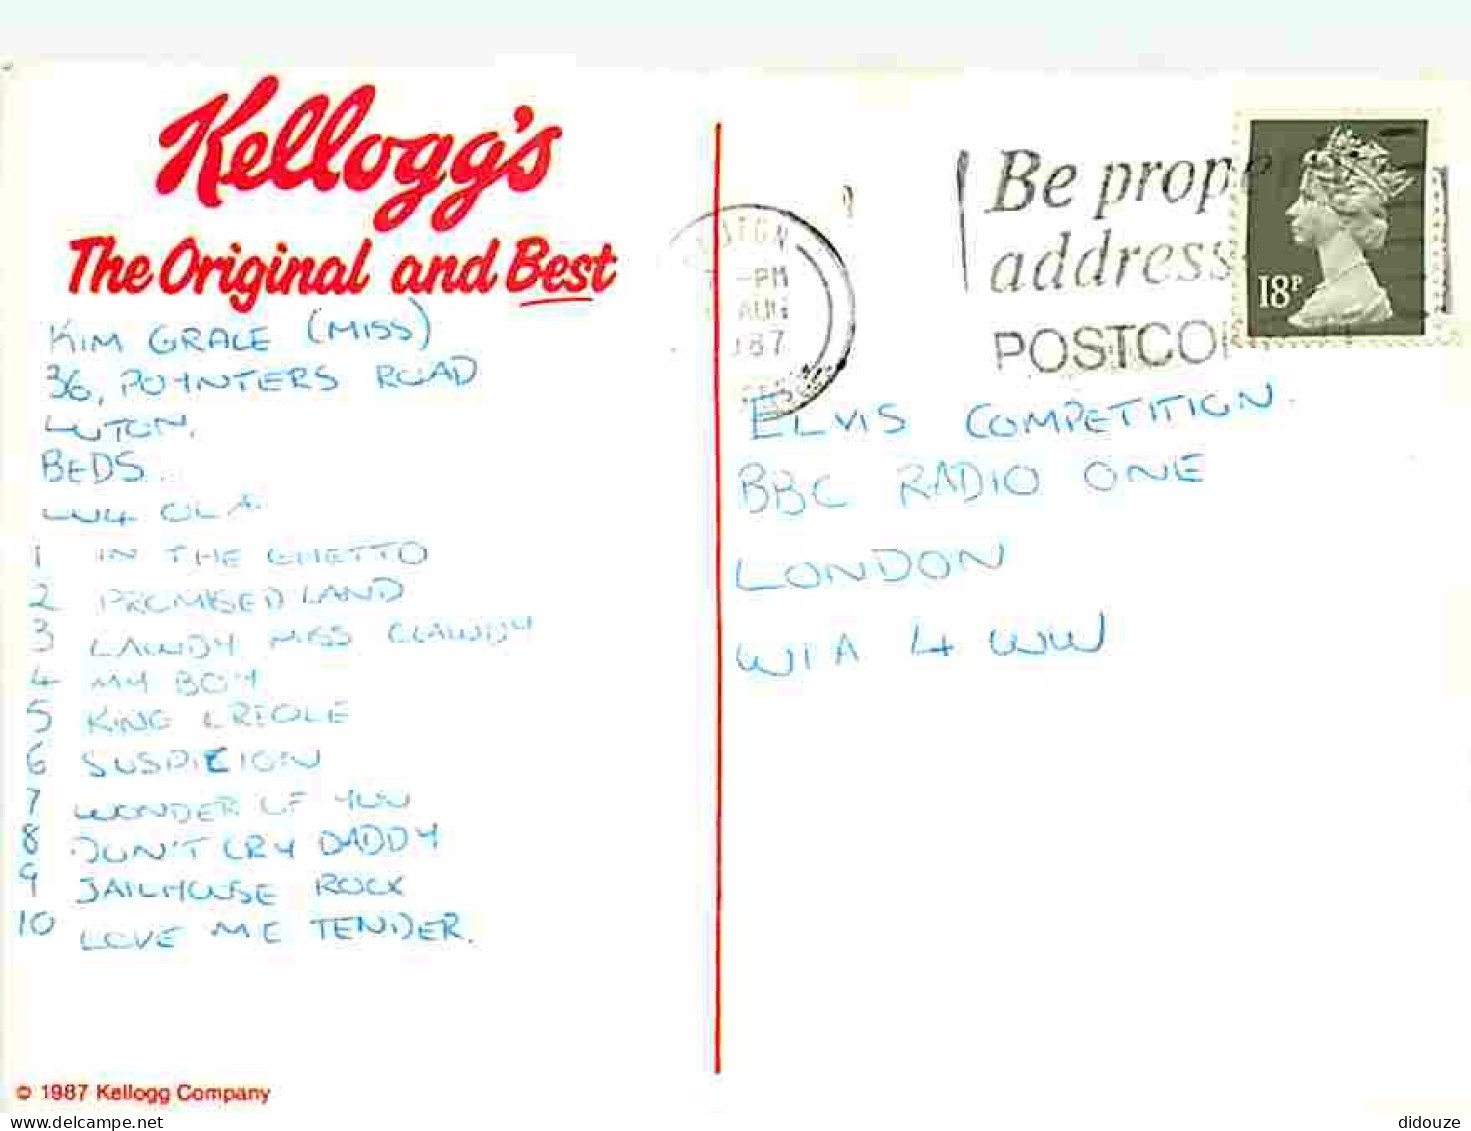 Kellogg's
The Original and Best
KIM GRACE (MISS)
36, POYNTERS ROAD
LUTON,
BEDS.
LU4 OLA
1 IN THE GHETTO
2 PROMISED LAND
3 LAWDY MISS CLAWDY
4 MY BOY
5 KING CREOLE
6 SUSPICION
7 WONDER OF YOU
8 DON'T CRY DADDY
9 JAILHOUSE ROCK
10 LOVE ME TENDER.
© 1987 Kellogg Company
LUTON
-PM
AUG
1987
BEDS
Be prope
address
POSTCO
18P
ELVIS COMPETITION.
BBC RADIO ONE
LONDON
W1A 4WW
delcampe.net
didouze